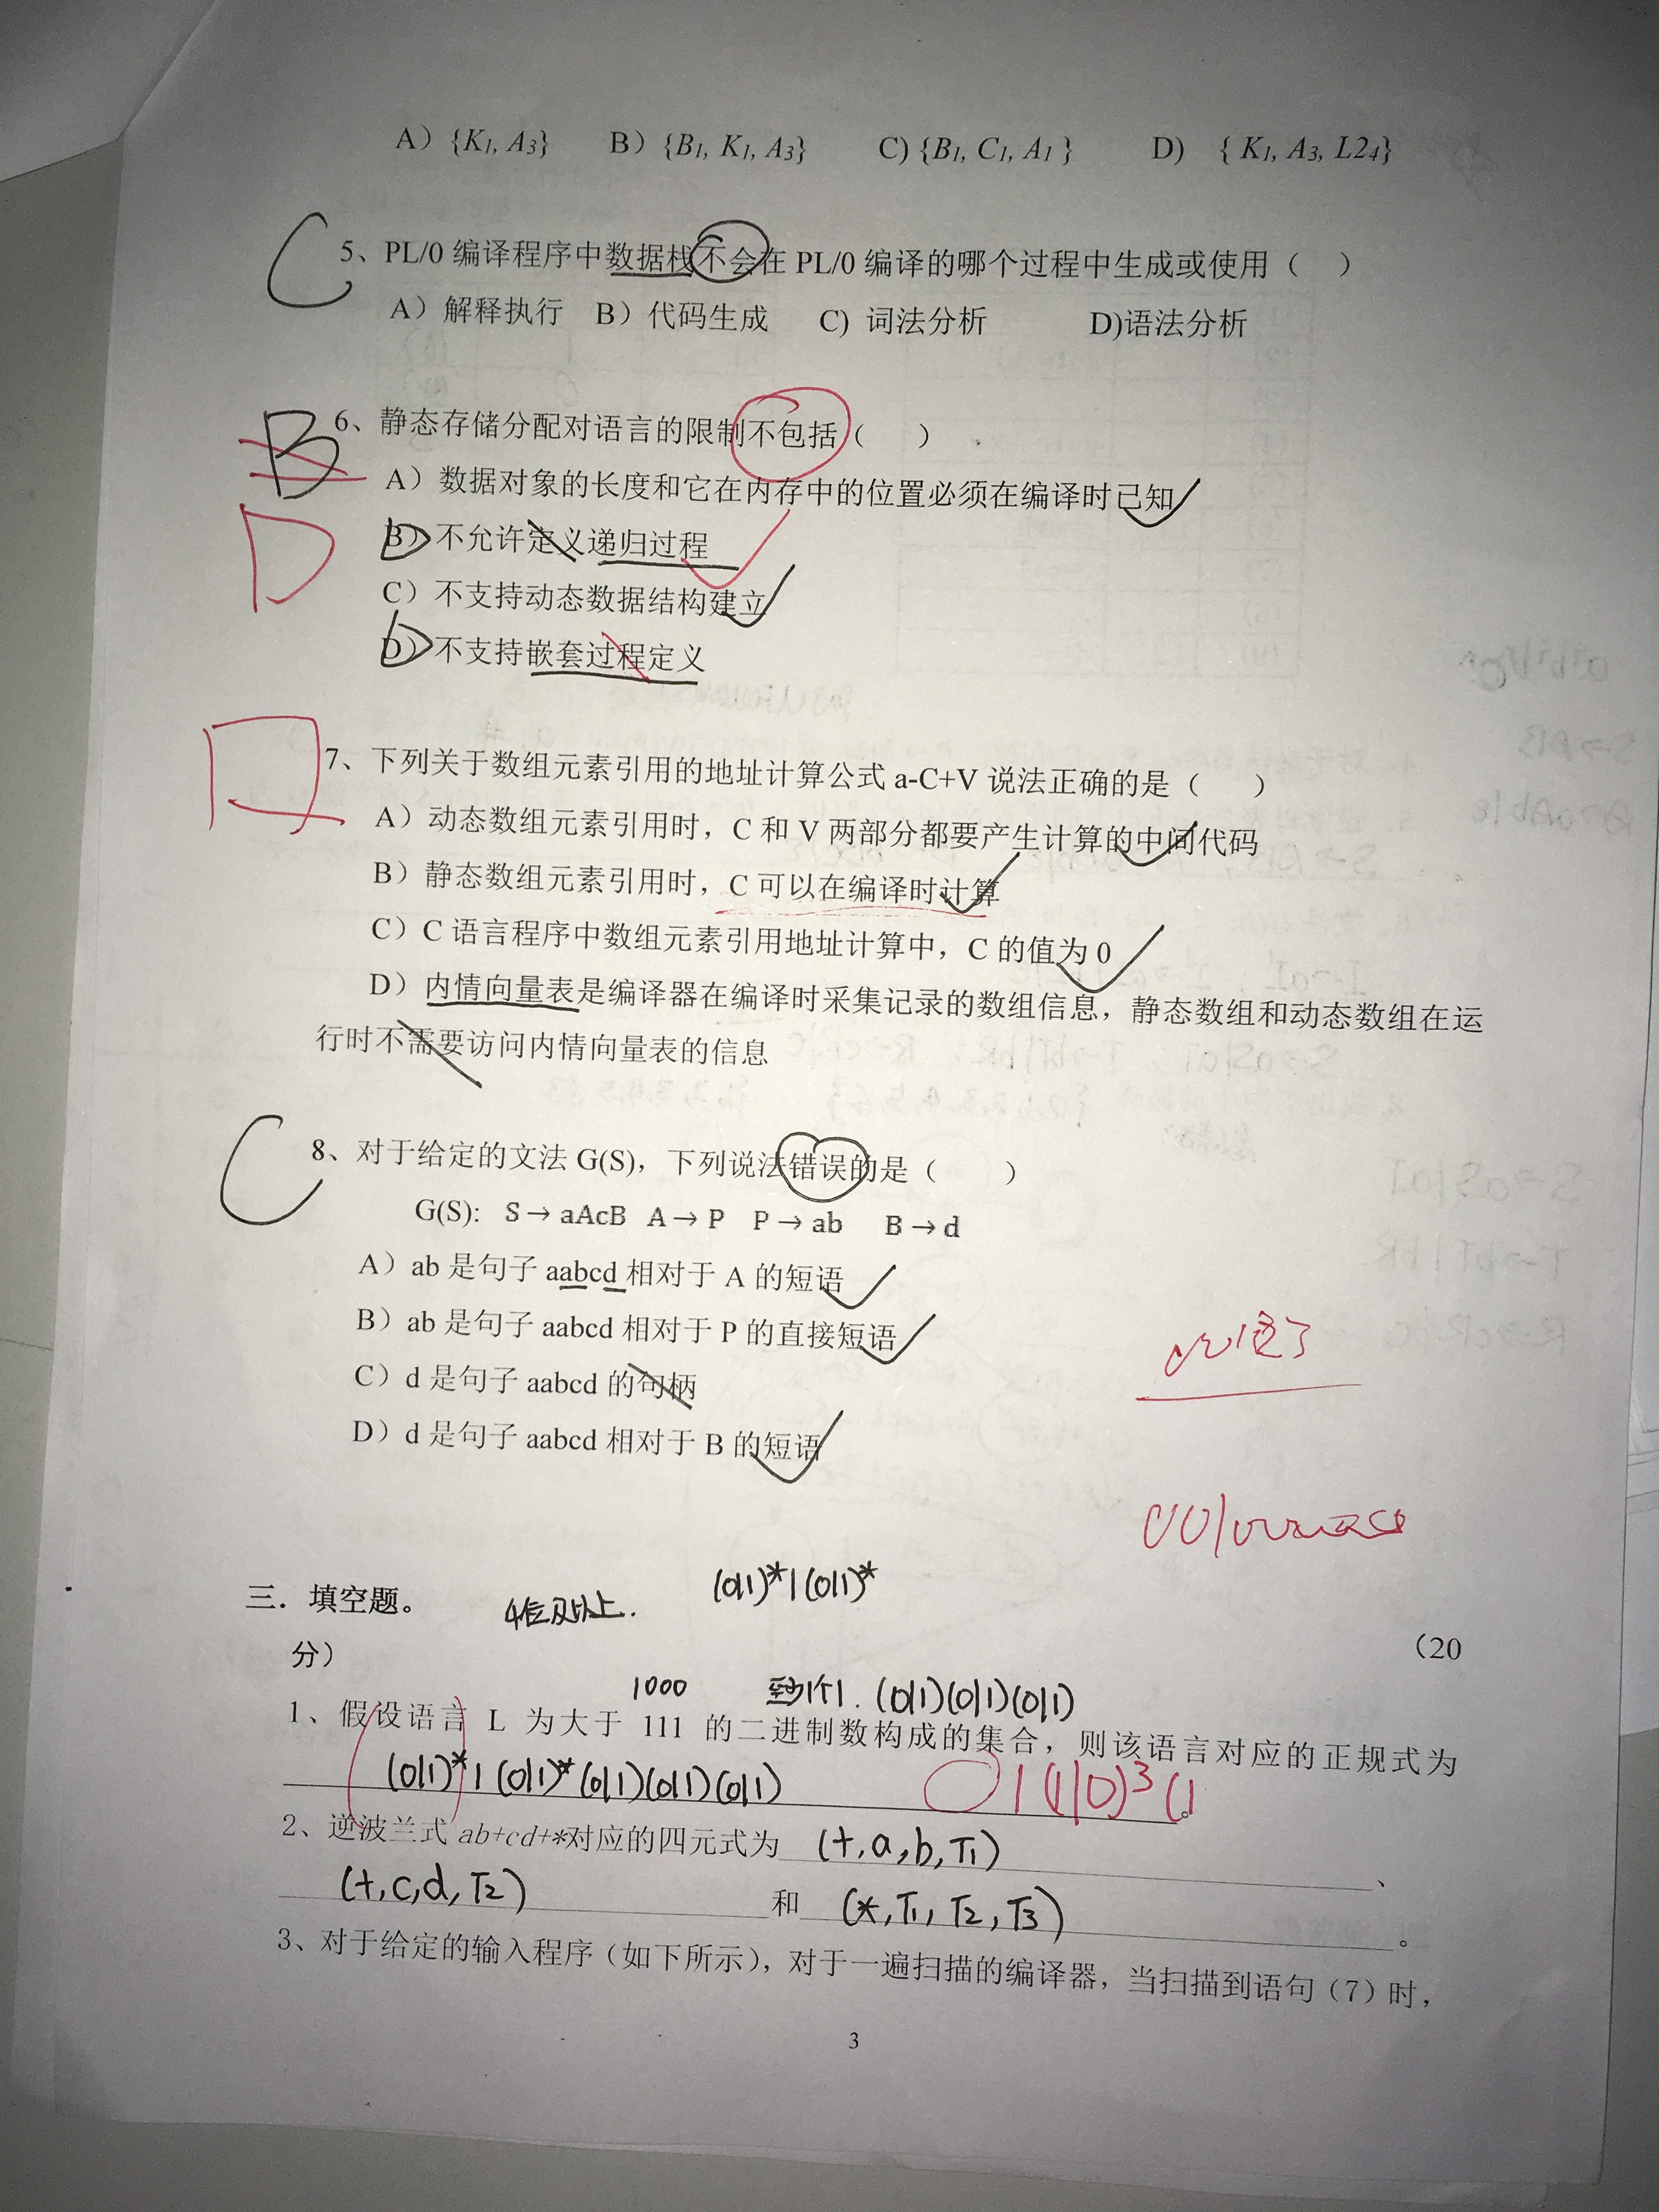 A）{K1, A3} B）{B1, K1, A3} C) {B1, C1, A1 } D) { K1, A3, L24}
C
5、PL/0 编译程序中数据栈不会在 PL/0 编译的哪个过程中生成或使用（ ）
A）解释执行 B）代码生成 C) 词法分析 D)语法分析
B
6、静态存储分配对语言的限制不包括（ ）
A）数据对象的长度和它在内存中的位置必须在编译时已知
D
B）不允许定义递归过程
C）不支持动态数据结构建立
D）不支持嵌套过程定义
7、下列关于数组元素引用的地址计算公式 a-C+V 说法正确的是（ ）
A）动态数组元素引用时，C 和 V 两部分都要产生计算的中间代码
B）静态数组元素引用时，C 可以在编译时计算
C）C 语言程序中数组元素引用地址计算中，C 的值为 0
D）内情向量表是编译器在编译时采集记录的数组信息，静态数组和动态数组在运
行时不需要访问内情向量表的信息
C
8、对于给定的文法 G(S)，下列说法错误的是（ ）
G(S): S → aAcB A → P P → ab B → d
A）ab 是句子 aabcd 相对于 A 的短语
B）ab 是句子 aabcd 相对于 P 的直接短语
C）d 是句子 aabcd 的句柄
D）d 是句子 aabcd 相对于 B 的短语
(0|1)*|(0|1)*
三．填空题。 4位及以上.
（20
分）
1000 至少1个1. (0|1)(0|1)(0|1)
1、假设语言 L 为大于 111 的二进制数构成的集合，则该语言对应的正规式为
(0|1)*1(0|1)*(0|1)(0|1)(0|1) 1(1|0)3(1 。
2、逆波兰式 ab+cd+*对应的四元式为 (+,a,b,T1) 、
(+,c,d,T2) 和 (*,T1,T2,T3) 。
3、对于给定的输入程序（如下所示），对于一遍扫描的编译器，当扫描到语句（7）时，
3